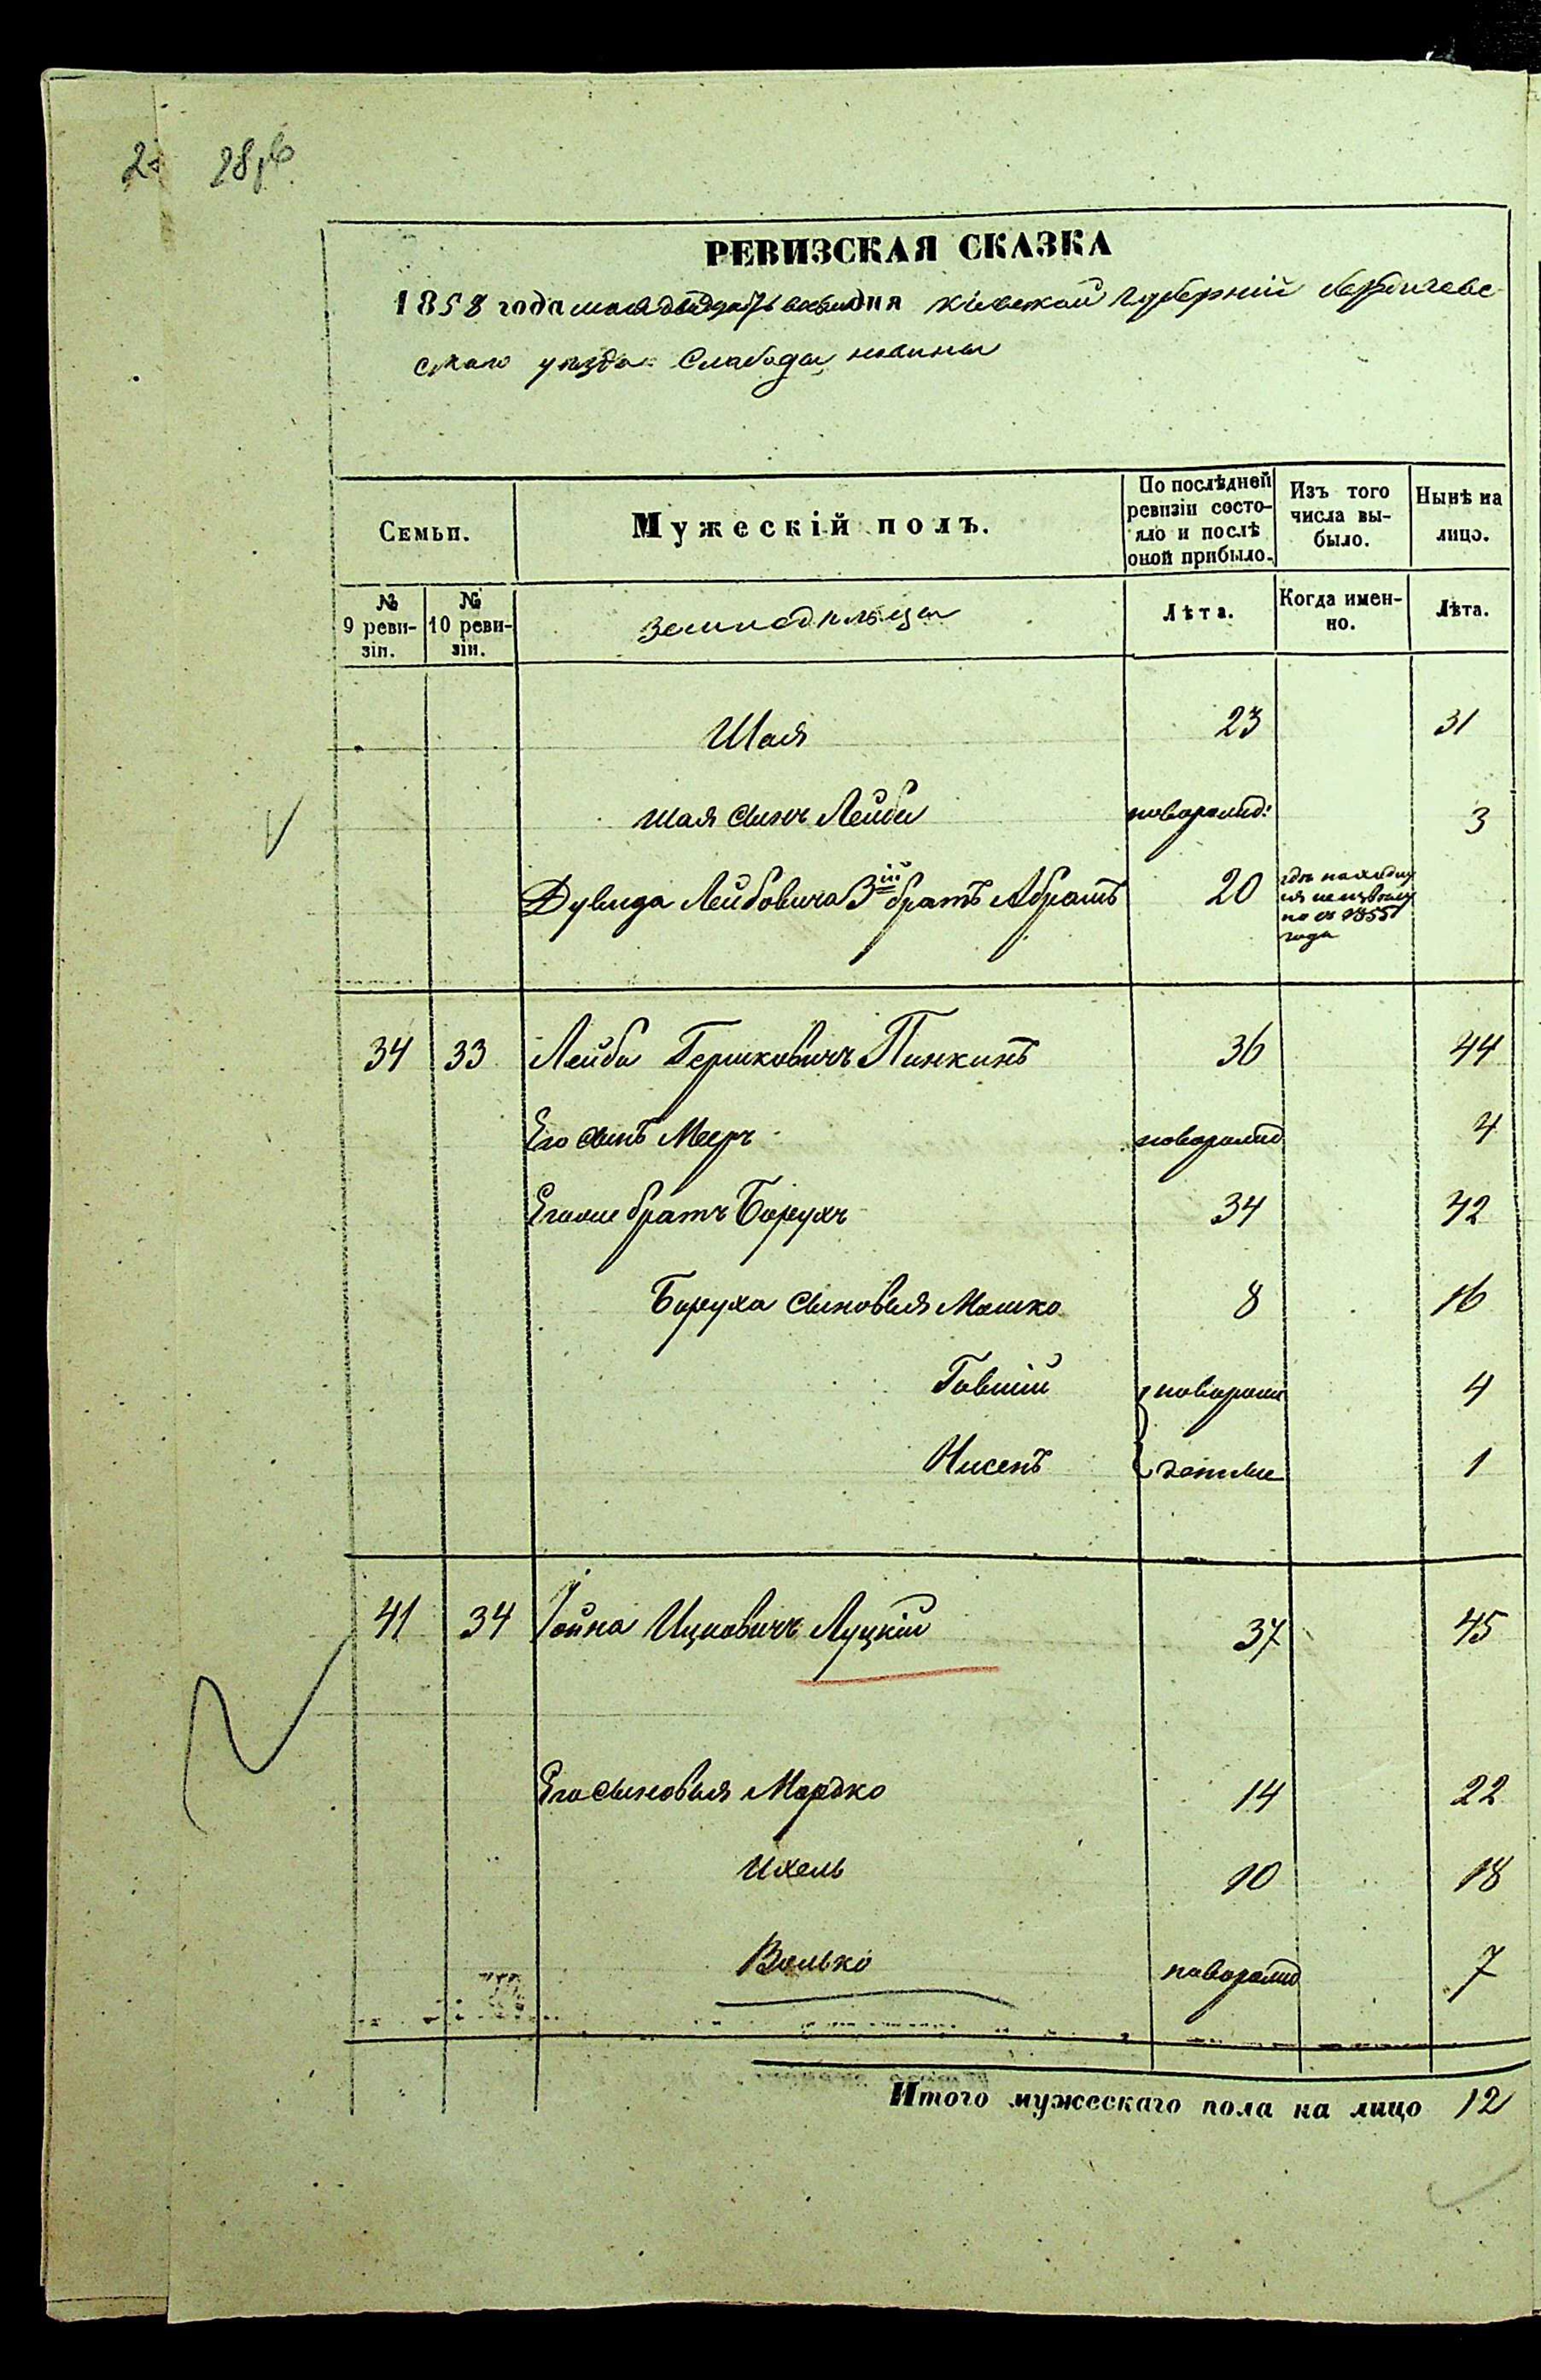 28 об
РЕВИЗСКАЯ СКАЗКА
1858 года мая дня Кіевской губерніи Бердичевс
скаго уезда Слабоды новины
Семьи.
Мужескій полъ.
По послѣдней ревизіи состо-
яло и послѣ оной прибыло.
Изъ того числа вы-
было.
Нынѣ на лицо.
№ 9 реви-
зіи.
№ 10 реви-
зіи.
земледельцы
Лѣта.
Когда имен-
но.
Лѣта.
Шая 23 31
Шая сынъ Лейба новорожд: 3
Дувида Лейбовича 3ій братъ Абрамъ 20 где находит
ся неизвестно
но съ 1855
года
34 33 Лейба Гершковичъ Пинкинъ 36 44
Его сынъ Меер новорожд 4
Его же братъ Борухъ 34 42
Боруха сыновья Мошко 8 16
Говшій новорож 4
Нисенъ денные 1
41 34 Іойна Ицковичъ Луцкій 37 45
Его сыновья Мордко 14 22
Ихель 10 18
Волько новорожд 7
Итого мужескаго пола на лицо 12